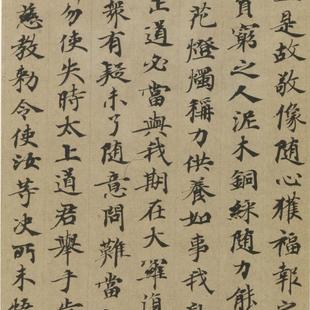 是故敬像随心獲福報
貧窮之人泥木銅綵随力能
花燈燭稱力供養如事我
道必當與我期在大羅
衆有疑未了随意問難當
勿使失時太上道君舉手
慈教勑令使汝等決所未悟